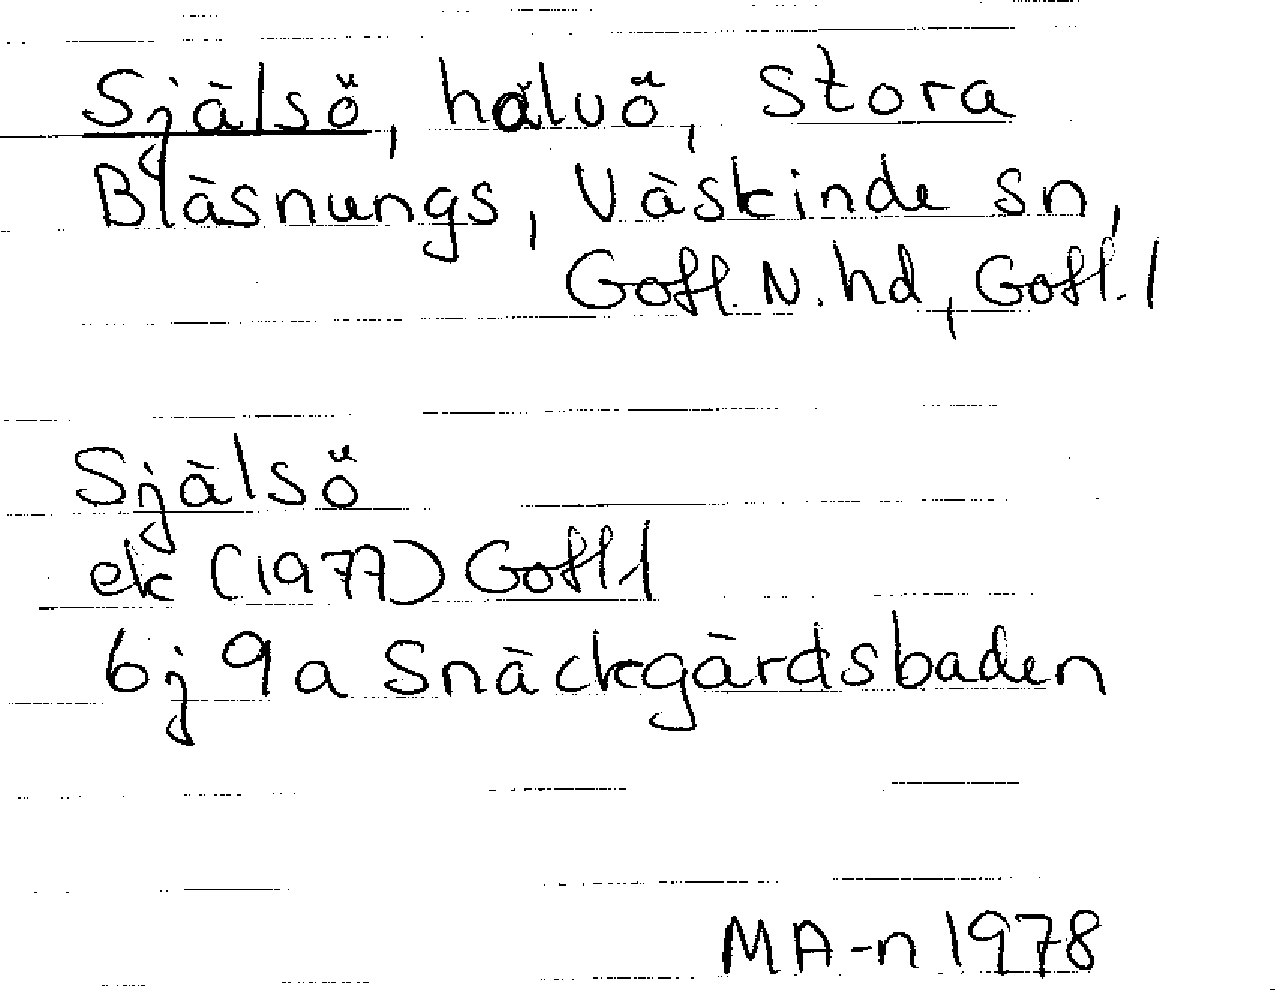 Själsö, halvö, Stora
Bläsnungs, Väskinde sn,
Gotl. N. hd, Gotl. l
Själsö
ek (1977) Gotl l
6j 9a Snäckgärdsbaden
MA-n 1978